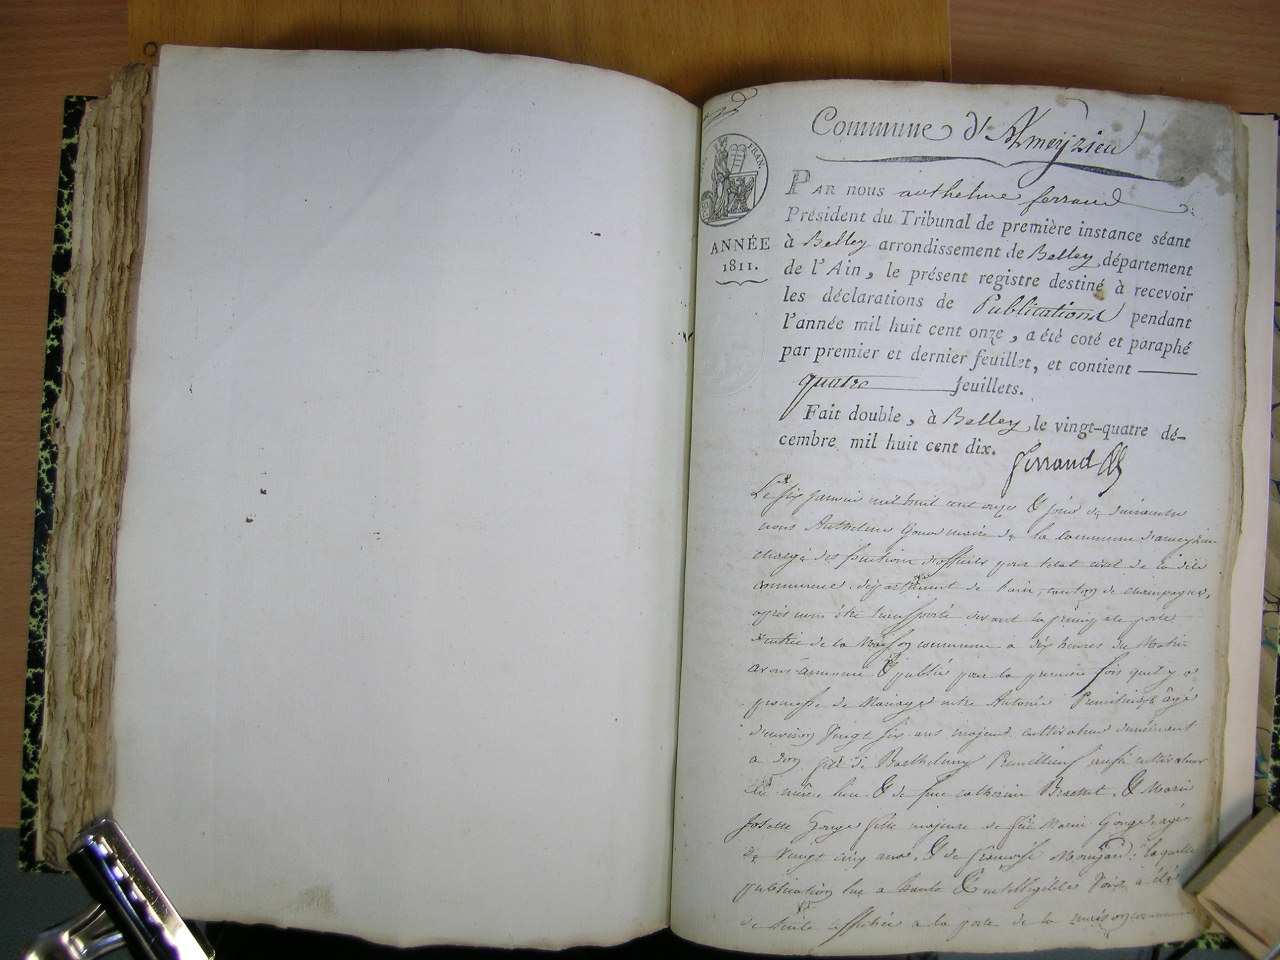 Commune d'Ameyzieu
FRAN
ANNÉE
1811.
PAR nous anthelme ferrand
Président du Tribunal de première instance séant
à Belley arrondissement de Belley, département
de l'Ain, le présent registre destiné à recevoir
les déclarations de Publications pendant
l'année mil huit cent onze, a été coté et paraphé
par premier et dernier feuillet, et contient
quatre feuillets.
Fait double, à Belley, le vingt-quatre dé-
cembre mil huit cent dix.
ferrand
Le six janvier mil huit cent onze & jour de dimanche
nous Anthelme maire de la commune d'ameyzieu
chargé des fonctions d'officier pour l'état civil de la dite
commune département de l'ain, canton de champagne,
après nous être transporté devant la principale porte
d'entrée de la Maison commune à dix heures du Matin
avons annoncé & publié pour la première fois qu'il y a
promesse de Mariage entre Antoine âgé
d'environ vingt six ans majeur cultivateur demeurant
à fils de Barthelemy aussi cultivateur
du même lieu & de feue catherine Brachet, & Marie
Josette Gonge fille majeure de feu Marin Gonge âgée
de vingt cinq ans, & de françoise : laquelle
publication lue a haute & intelligible voix, a été
de suite affichée a la porte de la maison commune